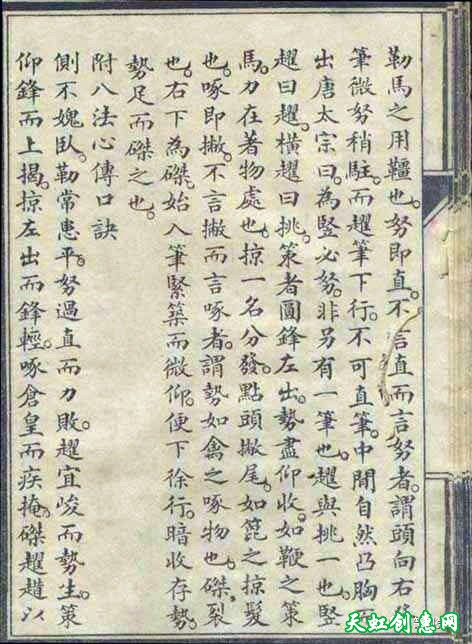 勒馬之用韁也。努即直。不言直而言努者。謂頭向右
筆微努稍駐。而趯筆下行。不可直筆。中間自然凸胸而
出唐太宗曰。為竪必努。非另有一筆也。趯與挑一也。竪
趯曰趯。橫趯曰挑。策者圓鋒左出。勢盡仰收。如鞭之策
馬。力在著物處也。掠一名分發。點頭撇尾。如篦之掠髮
也。啄即撇。不言撇而言啄者。謂勢如禽之啄物也。磔裂
也。右下為磔。始入筆緊築而微仰。便下徐行。暗收存勢。
勢足而磔之也。
附八法心傳口訣
側不媿臥。勒常患平。努過直而力敗。趯宜峻而勢生。策
仰鋒而上揭。掠左出而鋒輕。啄倉皇而疾掩。磔趯趞以
天虹创意网